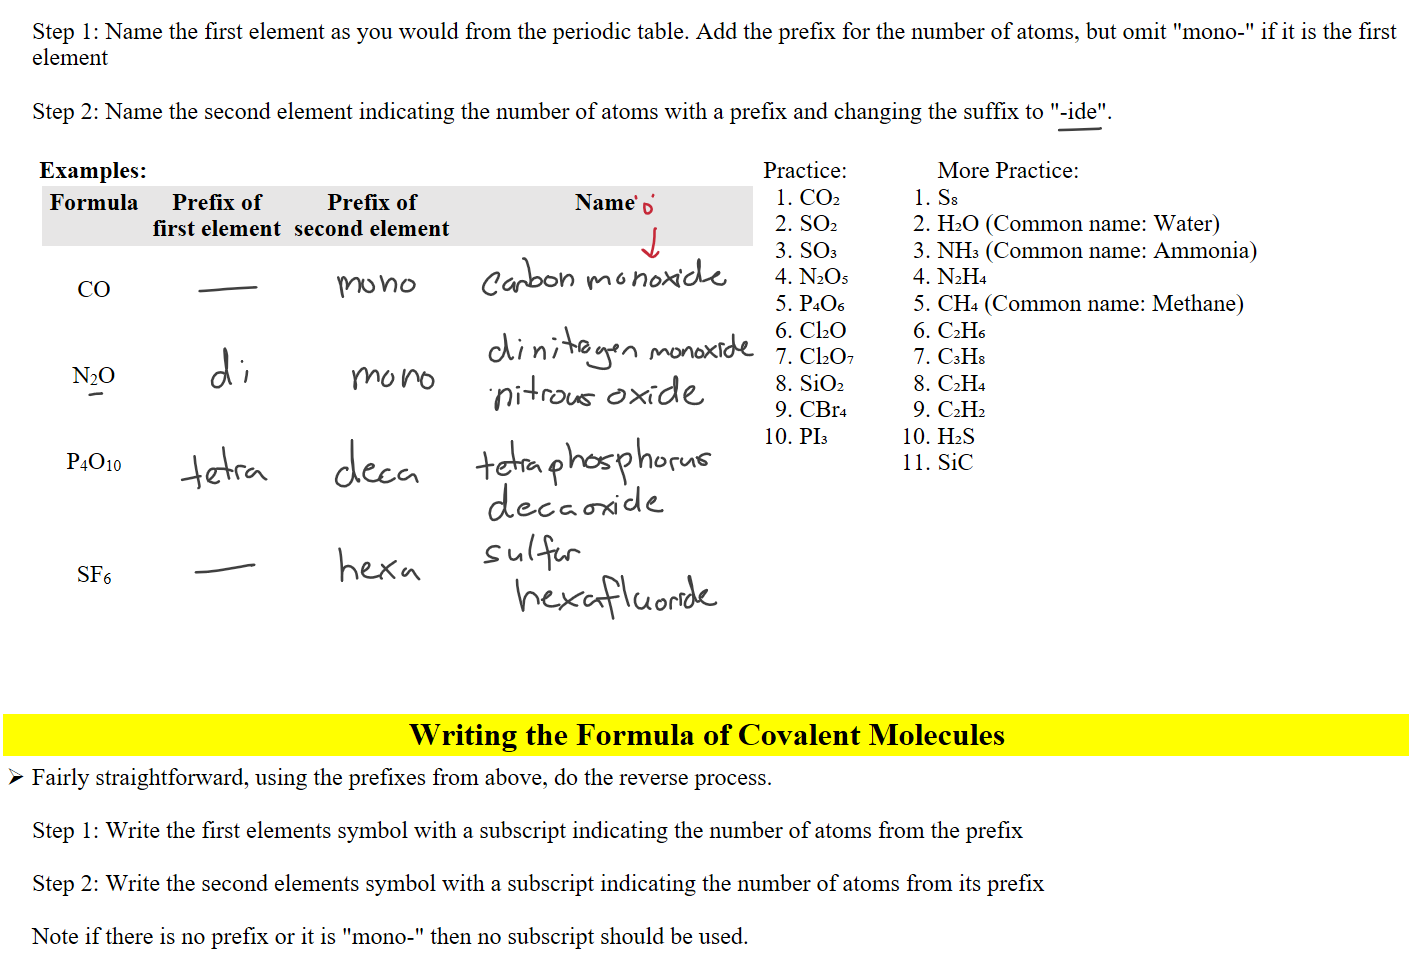 Step 1: Name the first element as you would from the periodic table. Add the prefix for the number of atoms, but omit "mono-" if it is the first
element
Step 2: Name the second element indicating the number of atoms with a prefix and changing the suffix to "-ide".
Examples:
Formula Prefix of first element Prefix of second element Name
CO — mono carbon monoxide
N₂O di mono dinitrogen monoxide
nitrous oxide
P₄O₁₀ tetra deca tetraphosphorus
decaoxide
SF₆ — hexa sulfur
hexafluoride
Practice:
1. CO₂
2. SO₂
3. SO₃
4. N₂O₅
5. P₄O₆
6. Cl₂O
7. Cl₂O₇
8. SiO₂
9. CBr₄
10. PI₃
More Practice:
1. S₈
2. H₂O (Common name: Water)
3. NH₃ (Common name: Ammonia)
4. N₂H₄
5. CH₄ (Common name: Methane)
6. C₂H₆
7. C₃H₈
8. C₂H₄
9. C₂H₂
10. H₂S
11. SiC
Writing the Formula of Covalent Molecules
➢ Fairly straightforward, using the prefixes from above, do the reverse process.
Step 1: Write the first elements symbol with a subscript indicating the number of atoms from the prefix
Step 2: Write the second elements symbol with a subscript indicating the number of atoms from its prefix
Note if there is no prefix or it is "mono-" then no subscript should be used.